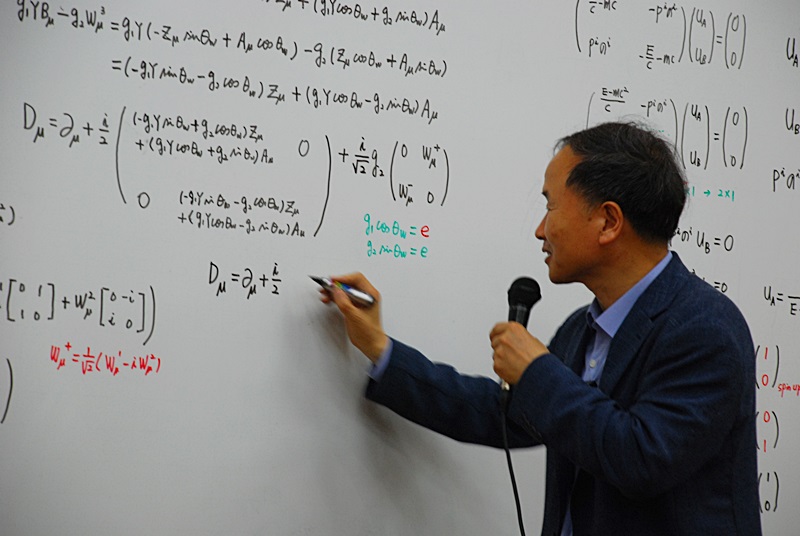 +(g₁Y cosθw + g₂ sinθw) Aμ
g₁YBμ − g₂Wμ³ = g₁Y(−Zμ sinθw + Aμ cosθw) − g₂(Zμ cosθw + Aμ sinθw)
= (−g₁Y sinθw − g₂ cosθw) Zμ + (g₁Y cosθw − g₂ sinθw) Aμ
Dμ = ∂μ + i/2 ( (−g₁Y sinθw + g₂ cosθw) Zμ + (g₁Y cosθw + g₂ sinθw) Aμ 0
0 (−g₁Y sinθw − g₂ cosθw) Zμ + (g₁Y cosθw − g₂ sinθw) Aμ ) + i/√2 g₂ ( 0 Wμ⁺
Wμ⁻ 0 )
g₁ cosθw = e
g₂ sinθw = e
Dμ = ∂μ + i/2
[ 0 1
1 0 ] + Wμ² [ 0 −i
i 0 ] )
Wμ⁺ = 1/√2 ( Wμ¹ − i Wμ² )
E/c − mc −pⁱσⁱ
pⁱσⁱ −E/c − mc ) ( U_A
U_B ) = ( 0
0 )
( E−mc²/c −pⁱσⁱ
( U_A
U_B ) = ( 0
0 )
×1 → 2×1
σⁱ U_B = 0
= 0
U_A
U_B
pⁱσⁱ
U_A =
( 1
0 ) spin up
( 0
1 )
( 1
0 )